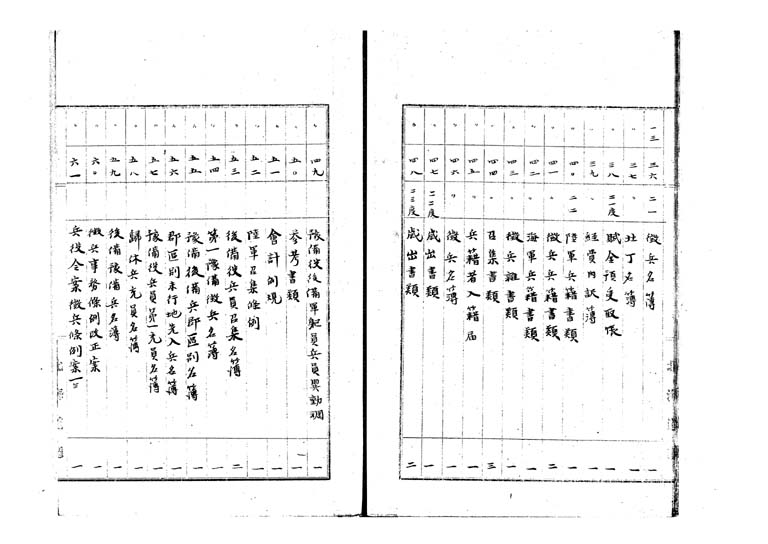 一三 三六 二一 徴兵名簿 一
〃 三七 〃 壮丁名簿 一
〃 三八 二一度 賦金預受取帳 一
〃 三九 経費内訳簿 一
〃 四〇 二二 陸軍兵籍書類 一
〃 四一 〃 徴兵書類 二
〃 四二 〃 海軍兵籍書類 一
〃 四三 〃 徴兵雑書類 一
〃 四四 〃 召集書類 三
〃 四五 〃 兵籍者入籍届 一
〃 四六 〃 徴兵名簿 一
〃 四七 二二度 歳出書類 一
〃 四八 二三度 歳出書類 二
〃 四九 豫備役後備軍躯員兵員異動調 一
〃 五〇 参考書類 一
〃 五一 会計例規 一
〃 五二 陸軍召集條例 一
〃 五三 後備役兵員召集名簿 二
〃 五四 第一豫備徴兵名簿 一
〃 五五 豫備後備兵郡區別名簿 一
〃 五六 郡區別未行地先入兵名簿 一
〃 五七 豫備役兵員第一充員名簿 一
〃 五八 歸休兵充員名簿 一
〃 五九 後備豫備兵名簿 一
〃 六〇 徴兵事務條例改正案 一
〃 六一 兵役令案徴兵條例案 一